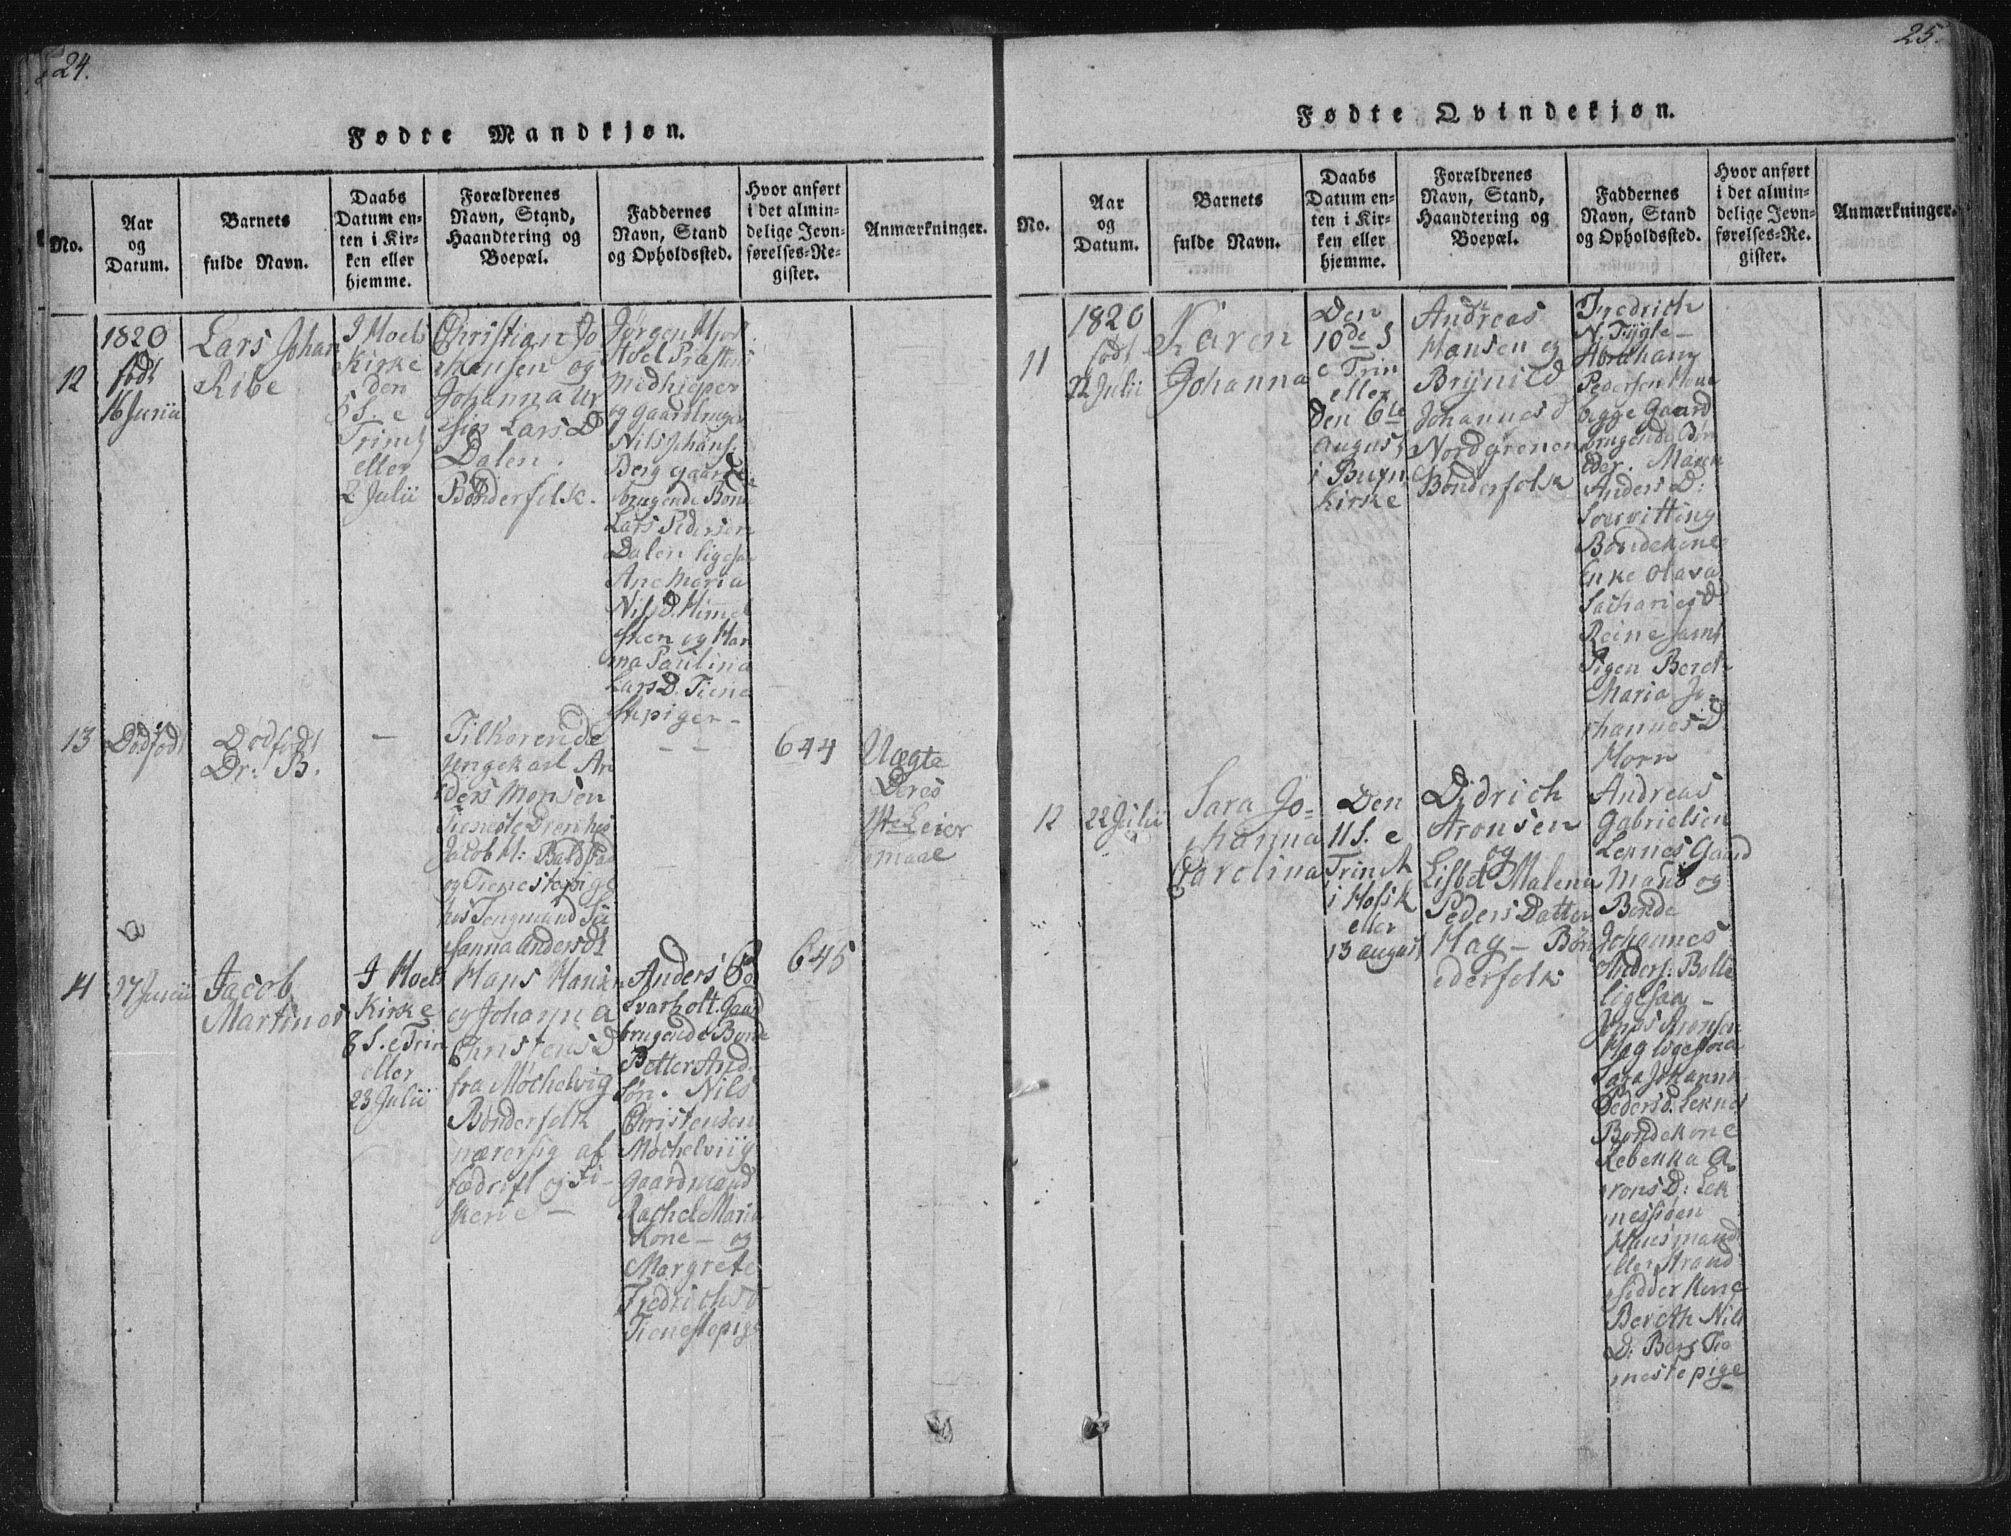 24.
Fødte Mandkjøn.
No.
Aar
og
Datum.
Barnets
fulde Navn.
Daabs
Datum en-
ten i Kir-
ken eller
hjemme.
Forældrenes
Navn, Stand,
Haandtering og
Boepæl.
Faddernes
Navn, Stand
og Opholdssted.
Hvor anført
i det almin-
delige Jevn-
førelses-Re-
gister.
Anmærkninger.
12
1820
født
16 Junii
Lars Johan
Ribe
I Hoels
Kirke
den
5 S. e
Trinit
eller
2 Julii
Christian Jo
hansen og
Johanna Ur
sin Lars D
Dalen.
Bønderfolk.
Jørgen
Hoel Præstens
Medhielper
og Gaardbruger
Nils Johans.
Berg gaard
brugende Bonde
Lars Pedersen
Dalen ligesaa
Ane Maria
Nils D. Himel
sken og Han
na Paulina
Lars D. Tiene
stepiger -
13
Dødfødt
Dødfødt
Dr: B.
-
Tilkorende
Ungekarl An
ders Monsen
Tieneste Dreng hos
Jacob H:
og Tienestepige
hos Sü
sanna Anders Dt
- -
644
Uægte
Deres
Leier
maal
14
27 Junii
Jacob
Martinus
I Hoels
Kirke
8 S. e Trin
eller
23 Julii
Hans Hansen
og Johanna
Christens D
fra Mochelvig
Bønderfolk
nærer sig af
fædrift og Fi-
skerie -
Anders
Svarholt. Gaard
brugende Bonde
Petter And
søn. Nils
Christensen
Mochelviig
Gaardmand
Rachel Maria
Kone - og
Margrete
Fredrichs D
Tienestepige
645
25.
Fødte Qvindekjøn.
No.
Aar
og
Datum.
Barnets
fulde Navn.
Daabs
Datum en-
ten i Kir-
ken eller
hjemme.
Forældrenes
Navn, Stand,
Haandtering og
Boepæl.
Faddernes
Navn, Stand
og Opholdssted.
Hvor anført
i det almin-
delige Jevn-
førelses-Re-
gister.
Anmærkninger.
11
1820
født
22 Julii
Karen
Johanna
Den
10de S
e Trin
eller
den 6te
August
i Buxn
Kirke
Andreas
Hansen og
Brynild
Johannes d
Nordgrenen
Bønderfolk
Fredrich
N. Tygle -
Abraham
Pedersen
begge Gaard
brugende Bøn
der. Maren
Anders D:
Bondekone
Enke Olava
Sacharies D
Reine samt
Pigen Bereth
Maria Jo-
hannes D
Horn
12
22 Julii
Sara Jo-
hanna
Carolina
Den
11 S. e
Trinit
i Hofs K
eller
13 August
Didrich
Aronsen
og
Lisbet Malena
Peders Datter
Hag - Bøn
derfolk
Andreas
Gabrielsen
Leknes Gaard
Mand og
Bonde
Johannes
Anders: Bolle
ligesaa -
Aronsen
Hag ligesaa
Sara Johanna
Peders d. Leknes
Bondekone
Rebekka A
rons D: Lek
nessiøen
Huusmand
eller Strand
sidder Kone
Bereth Nils
D: Berg Tie
nestepige